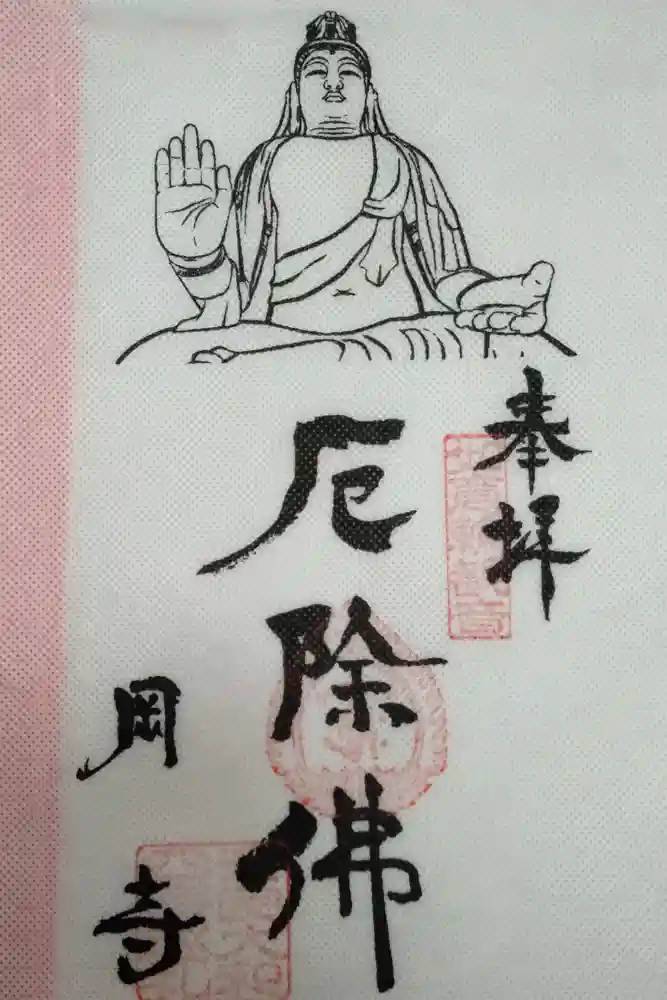 奉拝
厄除佛
岡寺